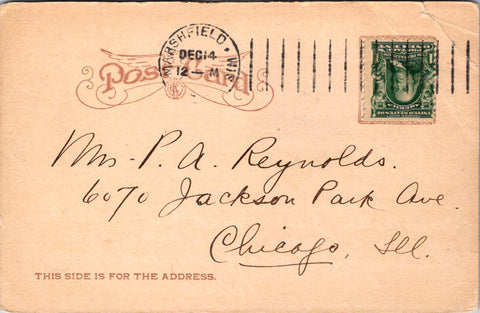 MARSHFIELD · WIS.
DEC 14
12 — M
Post Card
Mrs. P. A. Reynolds.
6070 Jackson Park Ave.
Chicago, Ill.
THIS SIDE IS FOR THE ADDRESS.